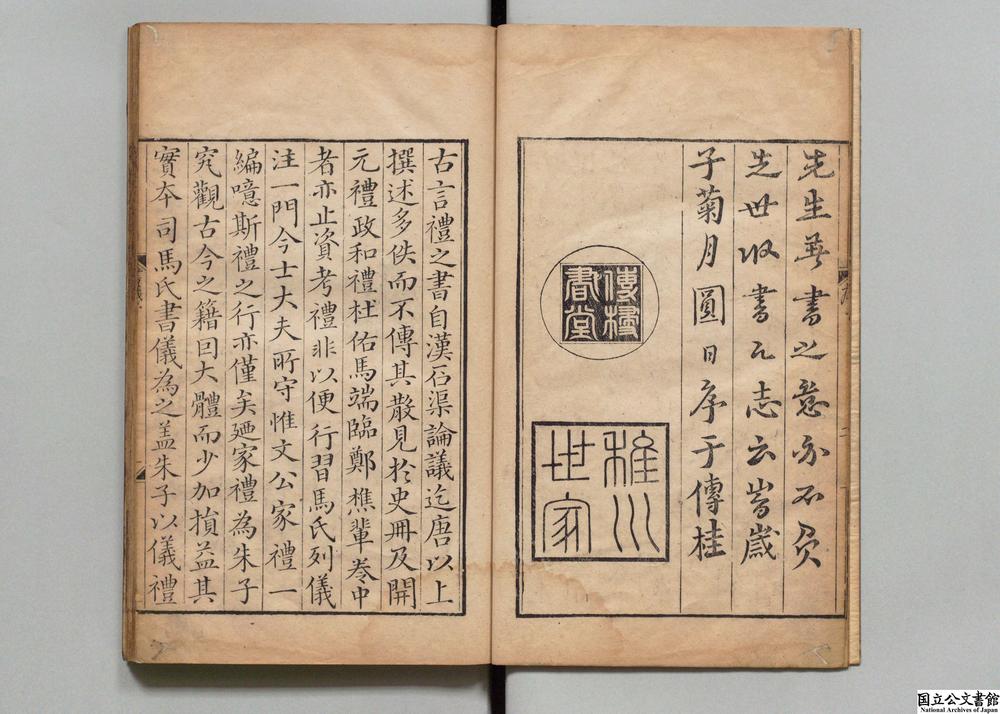 先生著書之意亦不負
先世收書之志云峕歲
子菊月圓日序于傳桂
稚川世家
古言禮之書自漢石渠論議迄唐以上
撰述多佚而不傳其散見於史冊及開
元禮政和禮杜佑馬端臨鄭樵輩卷中
者亦止資考禮非以便行習馬氏列儀
注一門今士大夫所守惟文公家禮一
編噫斯禮之行亦僅矣廼家禮為朱子
究觀古今之籍因大體而少加損益其
實本司馬氏書儀為之盖朱子以儀禮
国立公文書館
National Archives of Japan